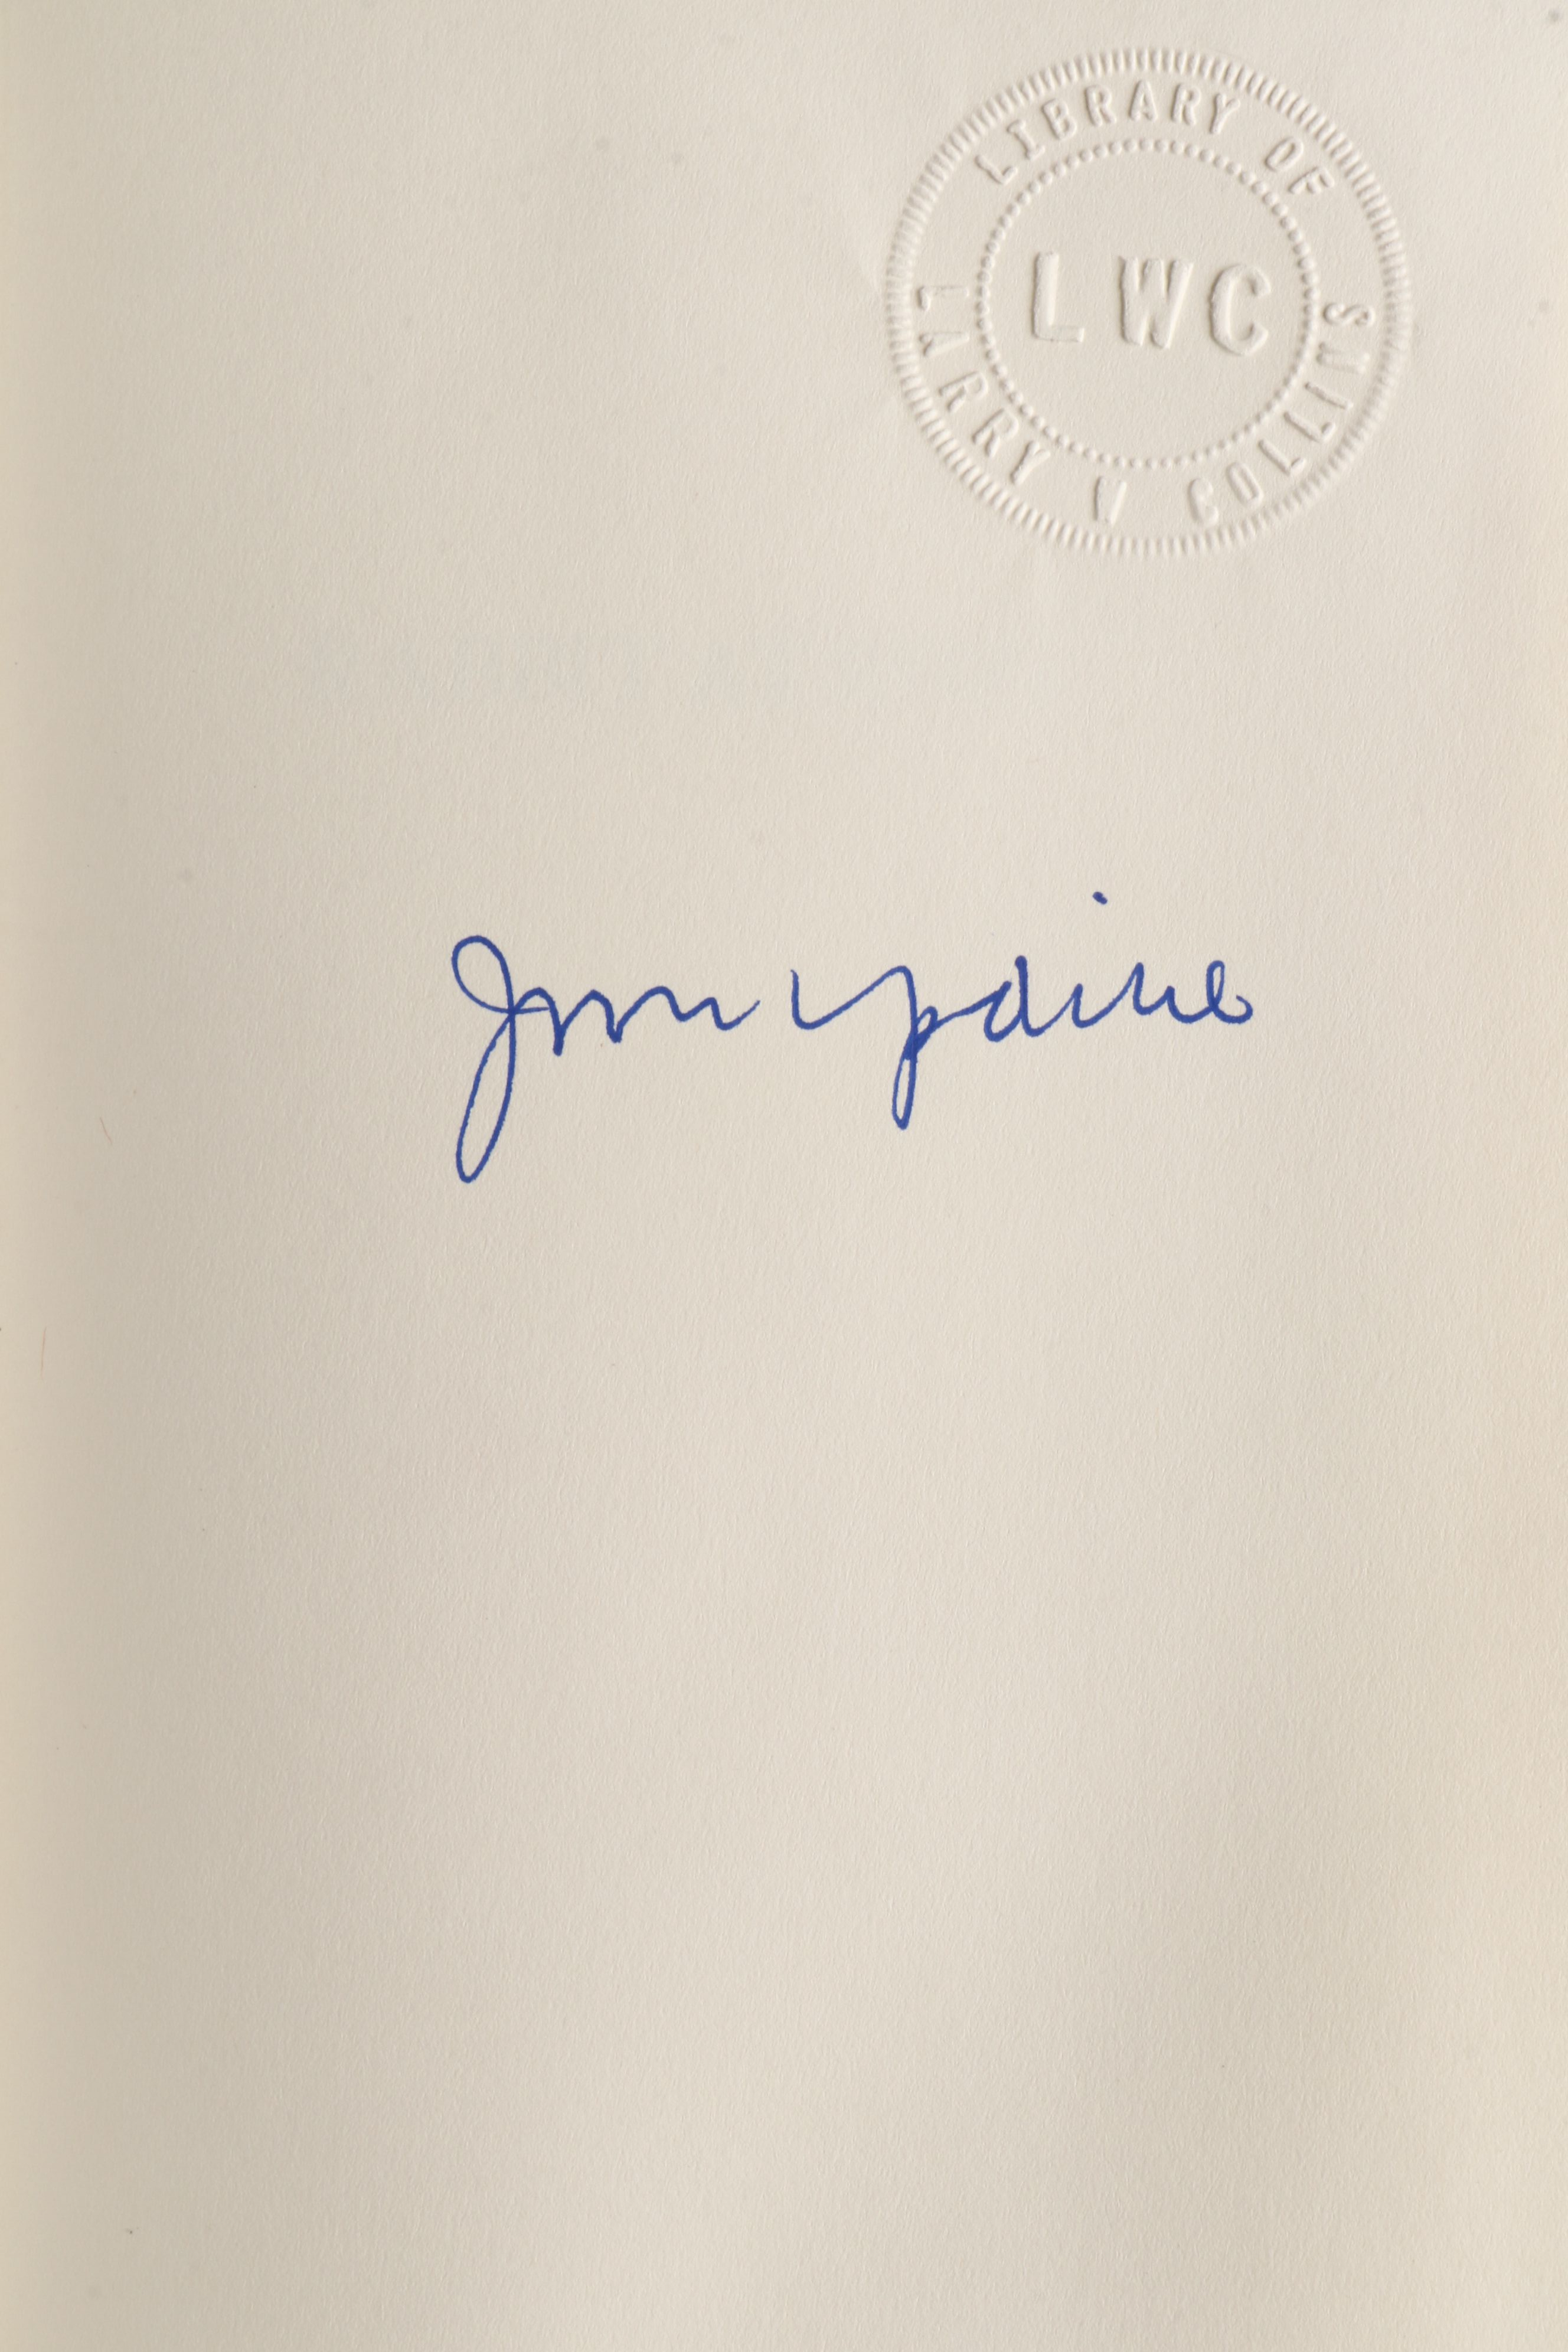 LIBRARY OF
LWC
LARRY W COLLINS
John Updike